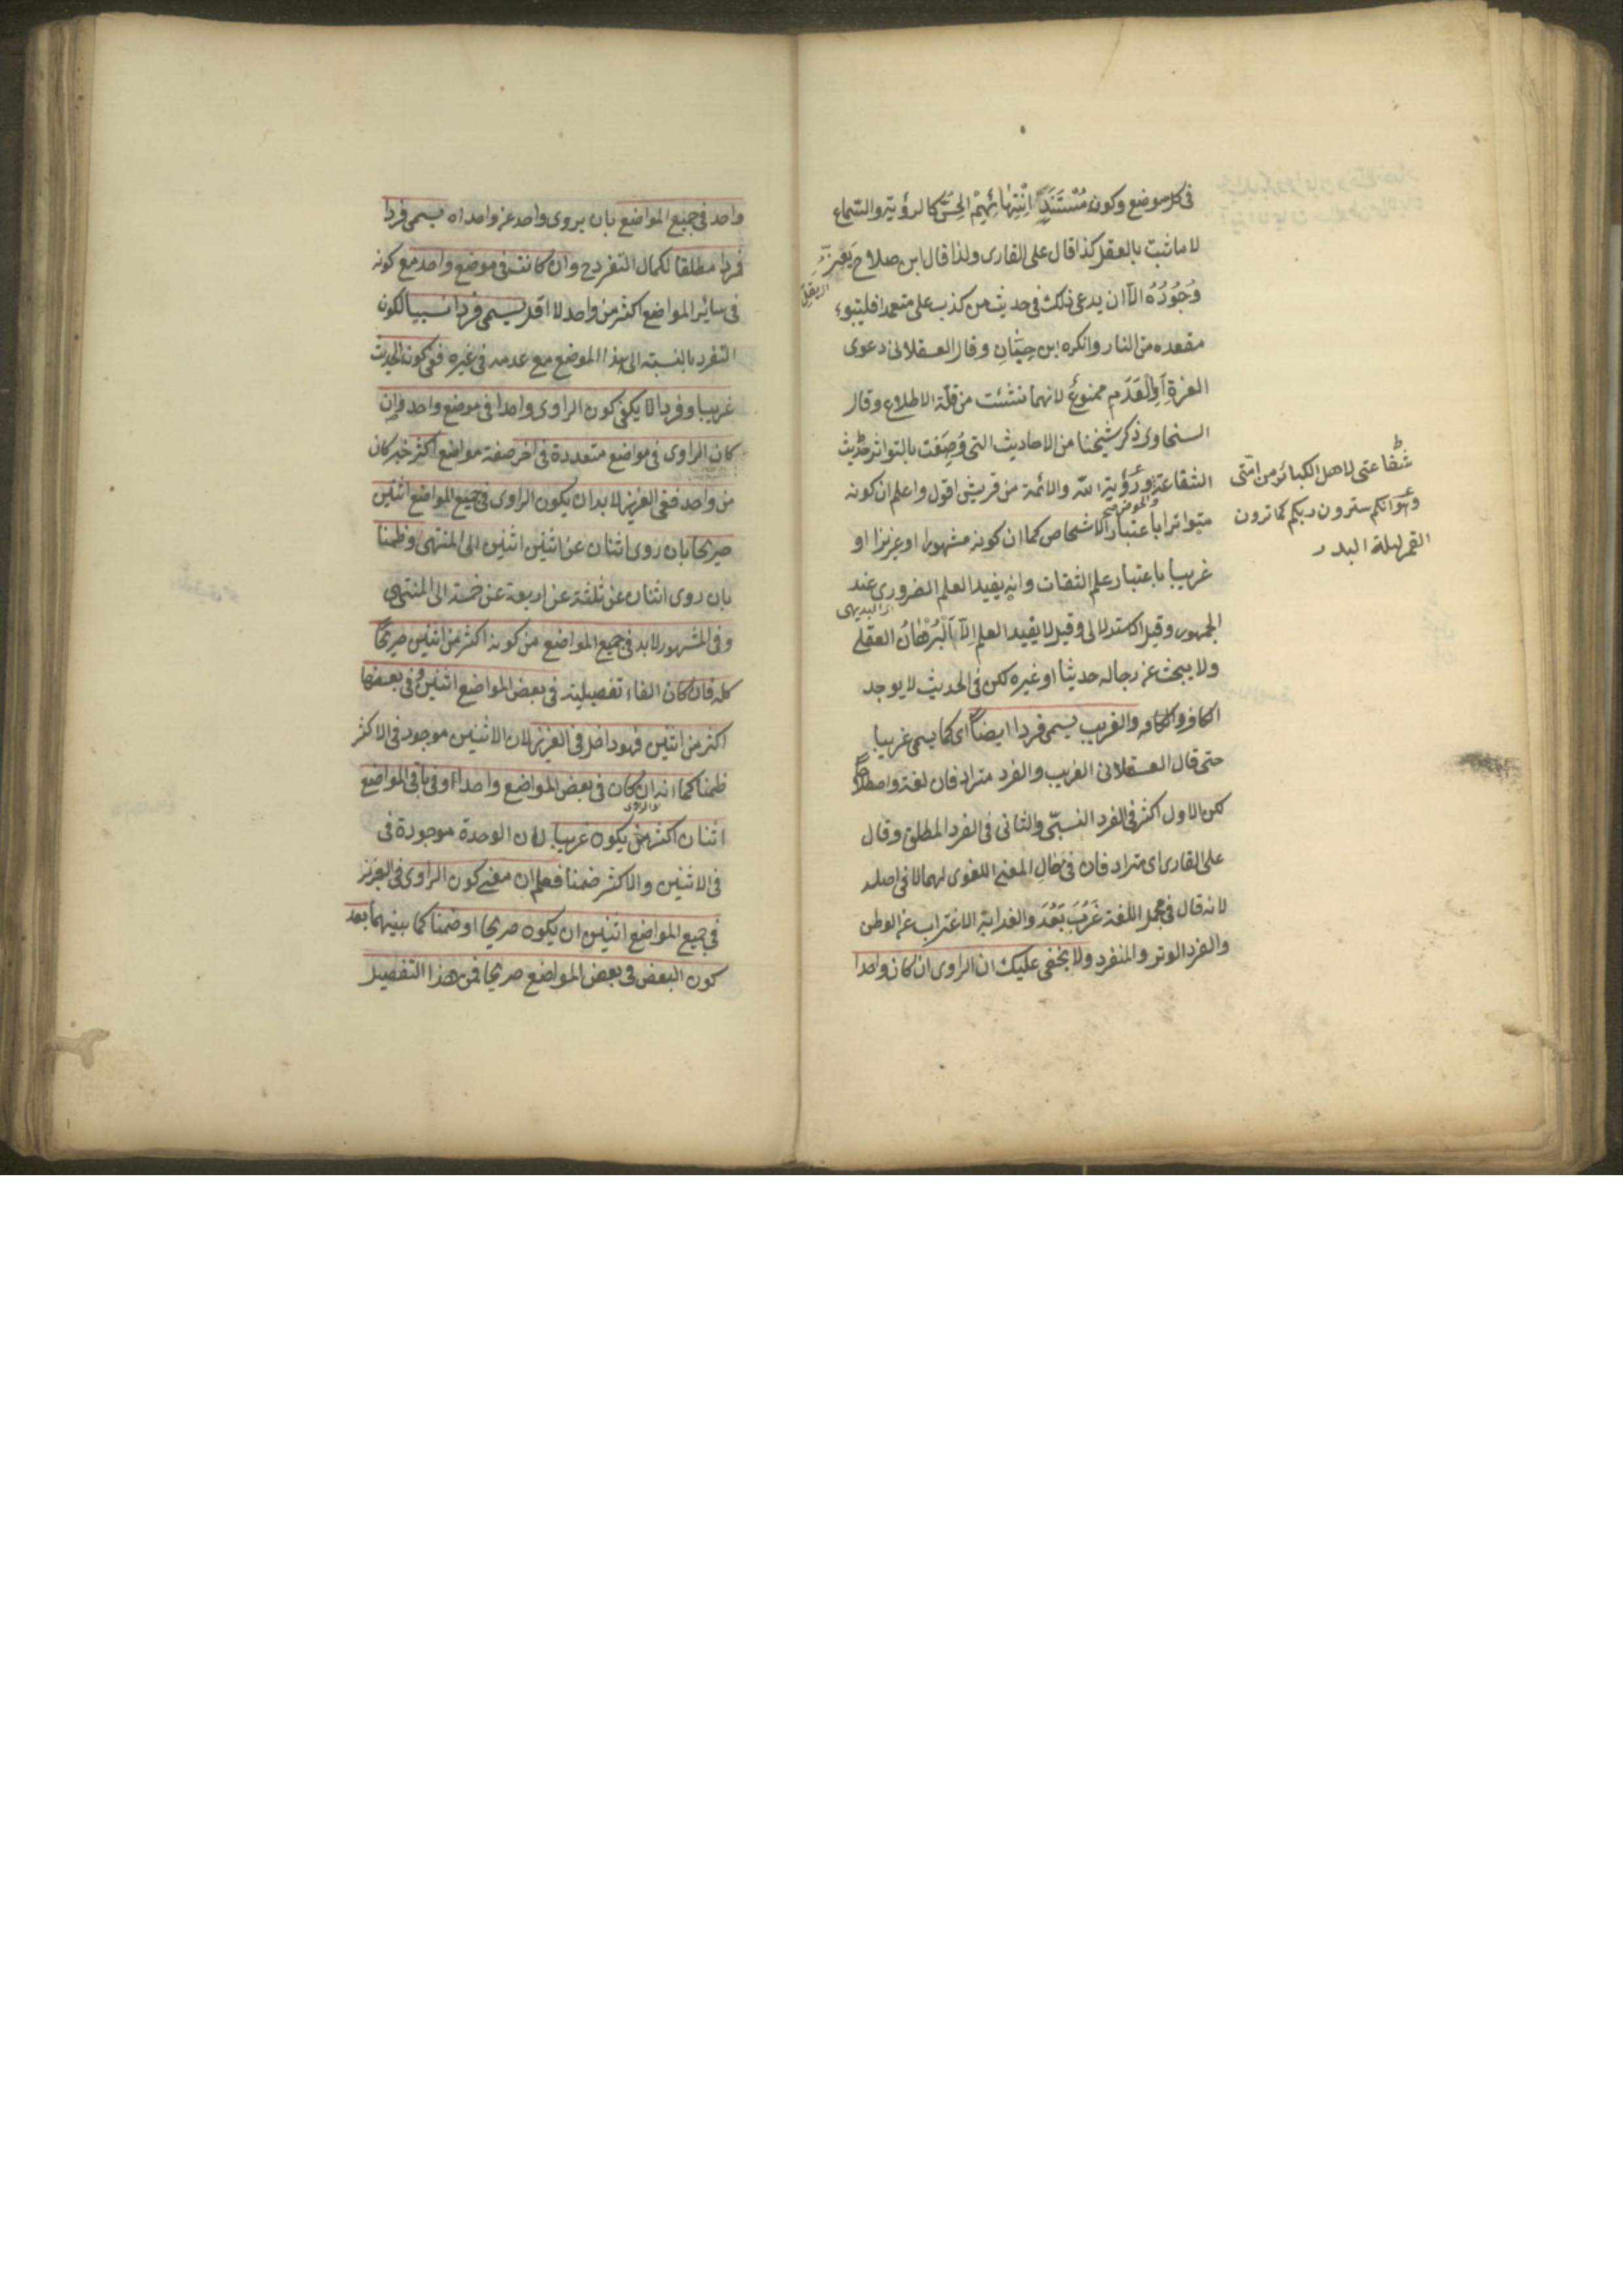 فى كل موضع وكون مُسْتَنَدِ انْتِهَائِهِمْ الحِسَّ كالرؤية والسماع
لا ما ثبت بالعقل كذا قال على القارى ولذا قال ابن صلاح يَعِزُّ
اى يَقِلّ
وُجُودُهُ الآ ان يدعى ذلك فى حديث من كذب على متعمدا فليتبوء
مقعده من النار وانكره ابن حِبَّانِ وقال العسقلانى دعوى
العزة اَوِالْعَدَمِ ممنوعٌ لانهما نشئت من قلّة الاطلاع وقال
السخاوى ذكر شيخنا من الاحاديث التى وُصِفَت بالتواتر حديث
الشفاعة ورؤية الله والائمة من قريش اقول واعلم ان كونه
متواترا باعتبار الاشخاص كما ان كونه مشهورا او عزيزا او
غريبا باعتبار علم الثقات وانه يفيد العلم الضرورى عند
اى البديهى
الجمهور وقيل الاستدلالى وقيل لا يفيد العلم اِلاّ اَلْبُرْهَانُ العقلى
ولا يبحث عن رجاله حديثا او غيره لكن فى الحديث لا يوجد
الكافر والغريب يسمى فردا ايضاً اى كما يسمى غريبا
حتى قال العسقلانى الغريب والفرد مترادفان لغة واصطلاحاً
لكن الاول اكثر فى الفرد النسبّى والثانى فى الفرد المطلق وقال
على القارى اى مترادفان فى مَالِ المعنى اللغوى لهما لا فى اصله
لانه قال فى مجمل اللغة غَرُبَ بَعُدَ والغرابة الاغتراب عن الوطن
والفرد الوتر والمنفرد ولا يخفى عليك ان الراوى ان كان واحدا
شفاعتى لاهل الكبائر من امّتى
وهو انكم سترون ربكم كما ترون
القمر ليلة البدر
واحد فى جميع المواضع بان يروى واحد عن واحد اه يسمى فردا
فردا مطلقا لكمال التفرد ح وان كانت فى موضع واحد مع كونه
فى سائر المواضع اكثر من واحد لا اقل يسمى فردا نسبيا لكون
التفرد بالنسبة الى هذا الموضع مع عدمه فى غيره ففى كون الحديث
غريبا وفردا لا يكفى كون الراوى واحدا فى موضع واحد فان
كان الراوى فى مواضع متعددة فى اخر صفة مواضع اكثر خبر كان
من واحد ففى العزيز لا بد ان يكون الراوى فى جميع المواضع اثنين
صريحا بان روى اثنان عن اثنين اثنين الى المنتهى وظمنا
بان روى اثنان عن ثلثة عن اربعة عن خمسة الى المنتهى
وفى المشهور لا بد فى جميع المواضع من كونه اكثر من اثنين صريحاً
كله فان كان الفاء تفصيلية فى بعض المواضع اثنين وفى بعضها
اكثر من اثنين فهو داخل فى العزيز لان الاثنين موجود فى الاكثر
ظمنا كما انه ان كان فى بعض المواضع واحدا وفى باقى المواضع
الراوى
اثنان اكثر منه يكون غريبا لان الوحدة موجودة فى
فى الاثنين والاكثر ضمنا فعلم ان معنى كون الراوى فى العزيز
فى جميع المواضع اثنين ان يكون صريحا او ضمنا كما بينهما بعد
كون البعض فى بعض المواضع صريحا فمن هذا التفصيل